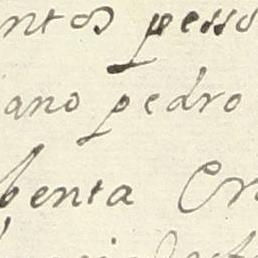 ntos pesso
ano pedro
benta Cr